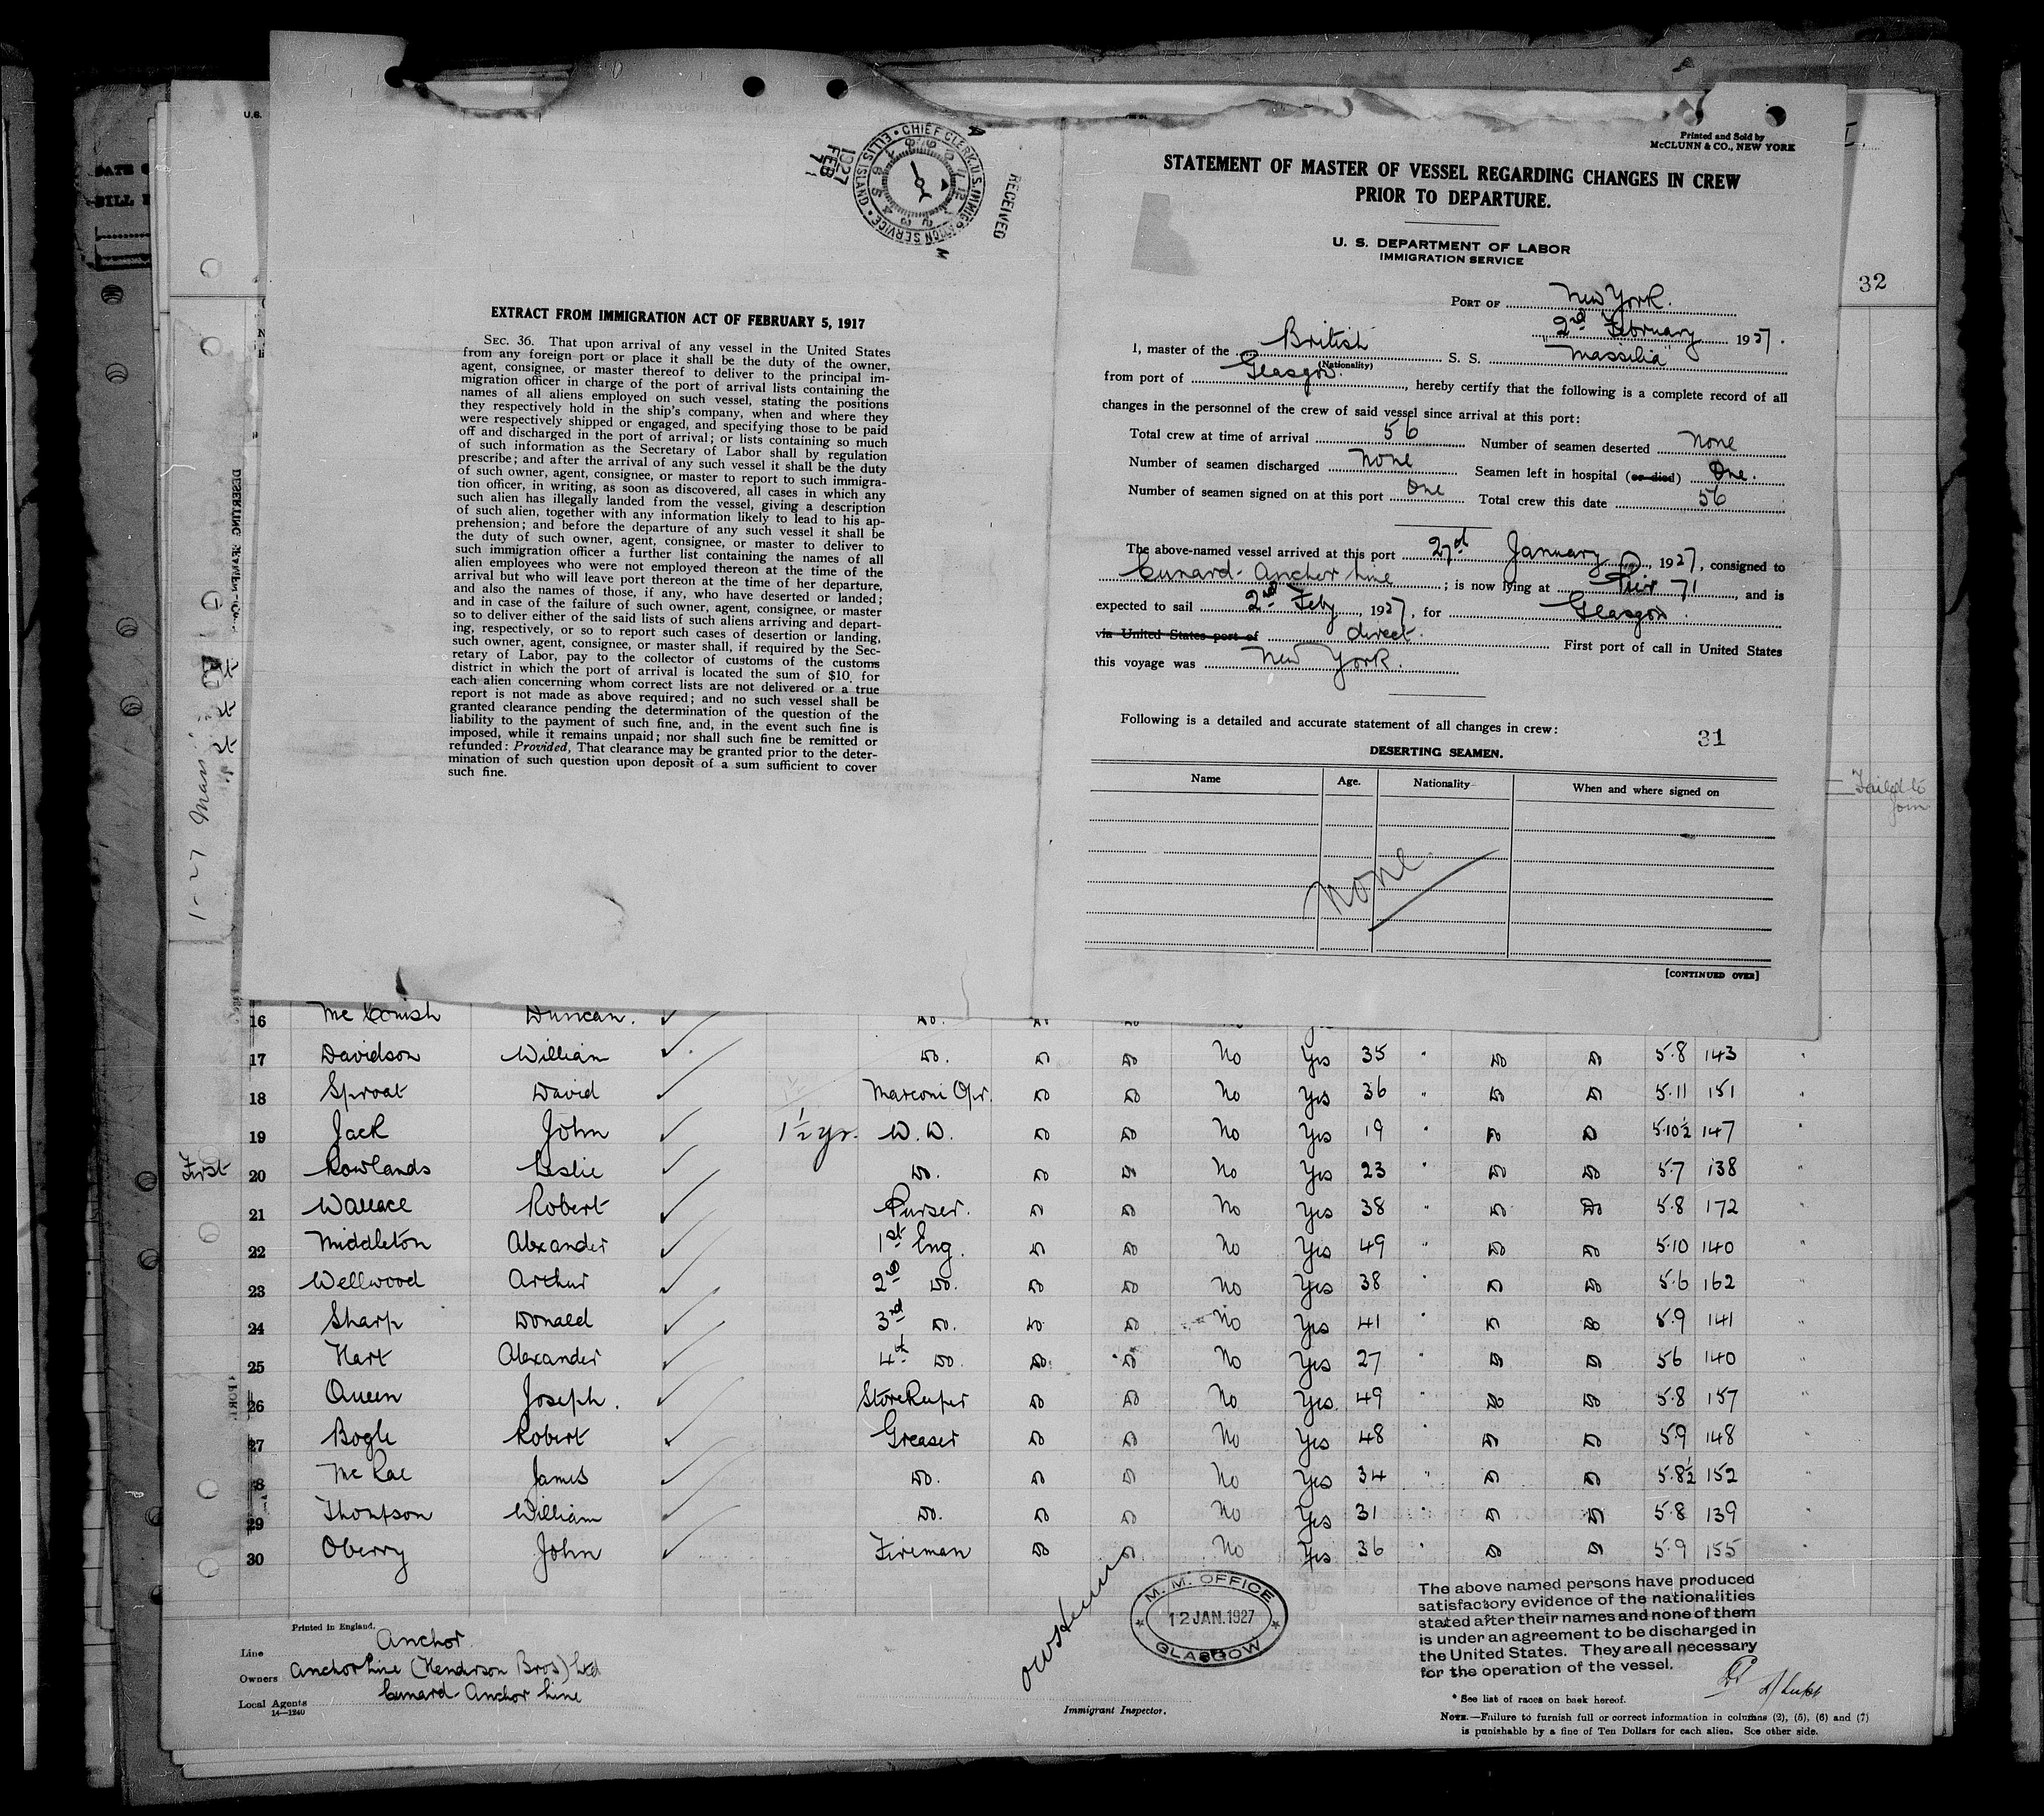 U.S.
RECEIVED
CHIEF CLERK, U.S. IMMIGRATION SERVICE • ELLIS ISLAND
1927
FEB
7
EXTRACT FROM IMMIGRATION ACT OF FEBRUARY 5, 1917
SEC. 36. That upon arrival of any vessel in the United States
from any foreign port or place it shall be the duty of the owner,
agent, consignee, or master thereof to deliver to the principal im-
migration officer in charge of the port of arrival lists containing the
names of all aliens employed on such vessel, stating the positions
they respectively hold in the ship's company, when and where they
were respectively shipped or engaged, and specifying those to be paid
off and discharged in the port of arrival; or lists containing so much
of such information as the Secretary of Labor shall by regulation
prescribe; and after the arrival of any such vessel it shall be the duty
of such owner, agent, consignee, or master to report to such immigra-
tion officer, in writing, as soon as discovered, all cases in which any
such alien has illegally landed from the vessel, giving a description
of such alien, together with any information likely to lead to his ap-
prehension; and before the departure of any such vessel it shall be
the duty of such owner, agent, consignee, or master to deliver to
such immigration officer a further list containing the names of all
alien employees who were not employed thereon at the time of the
arrival but who will leave port thereon at the time of her departure,
and also the names of those, if any, who have deserted or landed;
and in case of the failure of such owner, agent, consignee, or master
so to deliver either of the said lists of such aliens arriving and depart-
ing, respectively, or so to report such cases of desertion or landing,
such owner, agent, consignee, or master shall, if required by the Sec-
retary of Labor, pay to the collector of customs of the customs
district in which the port of arrival is located the sum of $10 for
each alien concerning whom correct lists are not delivered or a true
report is not made as above required; and no such vessel shall be
granted clearance pending the determination of the question of the
liability to the payment of such fine, and, in the event such fine is
imposed, while it remains unpaid; nor shall such fine be remitted or
refunded: Provided, That clearance may be granted prior to the deter-
mination of such question upon deposit of a sum sufficient to cover
such fine.
Printed and Sold by
McCLUNN & CO., NEW YORK
STATEMENT OF MASTER OF VESSEL REGARDING CHANGES IN CREW
PRIOR TO DEPARTURE.
U. S. DEPARTMENT OF LABOR
IMMIGRATION SERVICE
PORT OF New York.
2nd February 1927.
I, master of the British S. S. "Massilia"
(Nationality)
from port of Glasgow., hereby certify that the following is a complete record of all
changes in the personnel of the crew of said vessel since arrival at this port:
Total crew at time of arrival 56 Number of seamen deserted None
Number of seamen discharged None Seamen left in hospital (or died) One.
Number of seamen signed on at this port One Total crew this date 56
The above-named vessel arrived at this port 27th January, 1927, consigned to
Cunard-Anchor Line; is now lying at Pier 71, and is
expected to sail 2nd Feby, 1927, for Glasgow.
via United States port of direct. First port of call in United States
this voyage was New York.
Following is a detailed and accurate statement of all changes in crew:
31
DESERTING SEAMEN.
Name Age. Nationality When and where signed on
None
[CONTINUED OVER]
32
Failed to
join
16 McCornish Duncan. Do. Do Do
17 Davidson William Do. Do Do No Yes 35 " Do Do 5.8 143
18 Sproat David Marconi Opr. Do Do No Yes 36 " Do Do 5.11 151
19 Jack John 1½ yr. W.W. Do Do No Yes 19 " Do Do 5.10½ 147
First 20 Rowlands Leslie Do. Do Do No Yes 23 " Do Do 5.7 138
21 Wallace Robert Purser. Do Do No Yes 38 " Do Do 5.8 172
22 Middleton Alexander 1st Eng. Do Do No Yes 49 " Do Do 5.10 140
23 Wellwood Arthur 2nd Do. Do Do No Yes 38 " Do Do 5.6 162
24 Sharp Donald 3rd Do. Do Do No Yes 41 " Do Do 5.9 141
25 Hart Alexander 4th Do. Do Do No Yes 27 " Do Do 56 140
26 Queen Joseph. Storekeeper Do Do No Yes. 49 " Do Do 5.8 157
27 Bogle Robert Greaser Do Do No Yes 48 " Do Do 5.9 148
8 McRae James Do. Do Do No Yes 34 " Do Do 5.8½ 152
29 Thompson William Do. Do Do No Yes 31 " Do Do 5.8 139
30 Oberry John Fireman Do Do No Yes 36 " Do Do 5.9 155
Printed in England.
Line Anchor
Owners Anchor Line (Henderson Bros) Ltd
Local Agents Cunard-Anchor Line
14—1240
M. M. OFFICE
12 JAN. 1927
GLASGOW
Immigrant Inspector.
The above named persons have produced
satisfactory evidence of the nationalities
stated after their names and none of them
is under an agreement to be discharged in
the United States. They are all necessary
for the operation of the vessel.
* See list of races on back hereof.
NOTE.—Failure to furnish full or correct information in columns (2), (5), (6) and (7)
is punishable by a fine of Ten Dollars for each alien. See other side.